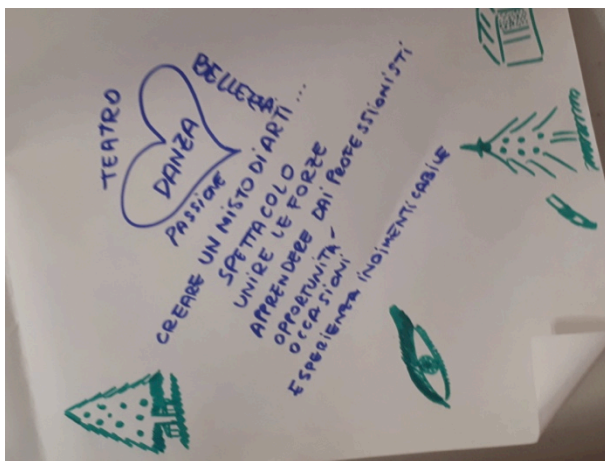 TEATRO
DANZA
BELLEZZA
PASSIONE
CREARE UN MISTO DI ARTI...
SPETTACOLO
UNIRE LE FORZE
APPRENDERE DAI PROFESSIONISTI
OPPORTUNITÀ
OCCASIONI
ESPERIENZA INDIMENTICABILE